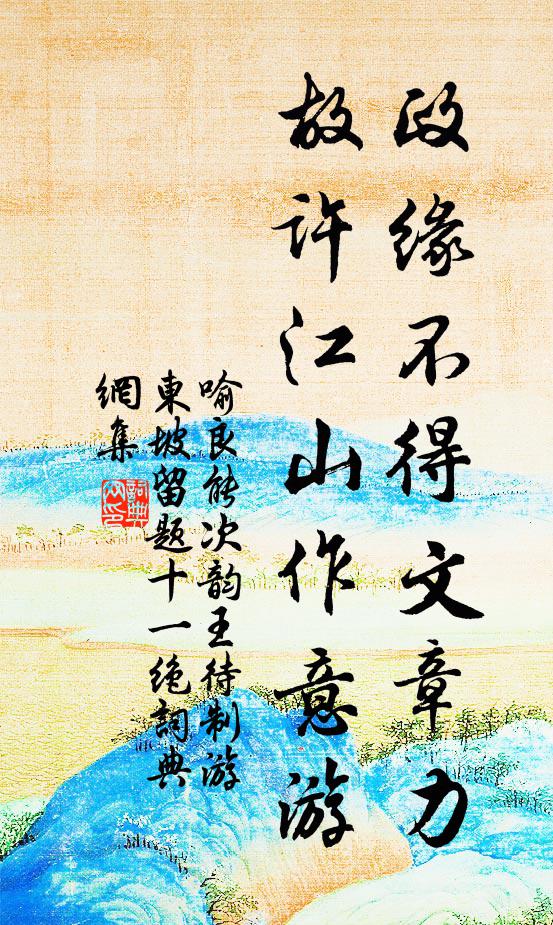 政缘不得文章力
故许江山作意游
喻良能次韵王待制游
東坡留题十一绝詞典
網集